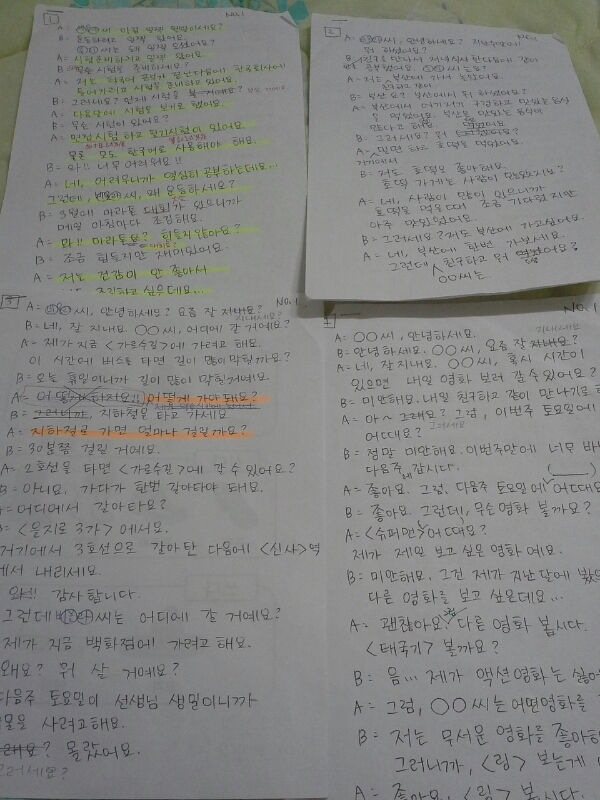 1
No.1
B = 운동하려고 일찍 왔어요.
A = 시험준비하려고 일찍 왔어요.
A = 저는 한국어 공부가 끝난 다음에 한국회사에
들어가려고 시험을 준비하고 있어요.
A = 다음달에 시험을 보기로 했어요.
B = 무슨 시험이 있어요?
A = 면접시험하고 필기시험이 있어요.
물론 모두 한국어로 사용해야 해요.
B = 와!! 너무 어려워요!!
A = 네, 어려우니까 열심히 공부하는데요...
그런데, 씨, 왜 운동하세요?
B = 3월에 마라톤 대회가 있으니까
매일 아침마다 조깅해요.
A = 와!! 마라톤은? 힘들지않아요?
B = 조금 힘들지만 재미있어요.
A = 저는 건강이 안 좋아서
조깅하고 싶은데요...
2
No.1
A = 씨, 안녕하세요? 지난주말에
뭐 하셨어요?
A = 저는 부산에 가서 놀았어요.
B = 부산요? 부산에서 뭐 하셨어요?
A = 부산에서 여기저기 구경하고 맛있는 음식
을 먹었어요. 부산은 맛있는 음식이
많다고 하
B = 그러세요? 뭐 드셨어요?
A = 밀면하고 호떡을 먹었어요.
거기에서
B = 저도 호떡을 좋아해요.
호떡 가게는 사람이 많았지요?
A = 네, 사람이 많이 있으니까
호떡을 먹을 때 조금 기다렸지만
아주 맛있었어요.
B = 그러세요? 저도 부산에 가고싶어요.
A = 네, 부산에 한번 가보세요.
그런데 친구하고 뭐 했어요?
○○씨는
3
No.1
A = 씨, 안녕하세요? 요즘 잘 지내요?
지내세요?
B = 네, 잘 지내요. ○○씨, 어디에 갈 거예요?
A = 제가 지금 <가로수길>에 가려고 해요.
이 시간에 버스를 타면 길이 많이 막힐까요?
B = 오늘 휴일이니까 길이 많이 막힐거예요.
A = 어떻게 가야 돼요?
B = 그러니까, 지하철을 타고 가세요
A = 지하철로 가면 얼마나 걸릴까요?
B = 30분쯤 걸릴 거예요.
A = 2호선을 타면 <가로수길>에 갈 수 있어요?
B = 아니요, 가다가 한번 갈아타야 돼요.
A = 어디에서 갈아타요?
B = <을지로 3가>에서요.
거기에서 3호선으로 갈아탄 다음에 <신사>역
에서 내리세요.
와!! 감사합니다.
그런데 씨는 어디에 갈 거예요?
제가 지금 백화점에 가려고 해요.
왜요? 뭐 살 거예요?
다음주 토요일이 선생님 생일이니까
물을 사려고해요.
그래요? 몰랐어요.
그러세요?
No.1
A = ○○씨, 안녕하세요.
지내세요
B = 안녕하세요. ○○씨, 요즘 잘 지내요?
A = 네, 잘 지내요. ○○씨, 혹시 시간이
있으면 내일 영화 보러 갈 수 있어요?
B = 미안해요. 내일 친구하고 같이 만나기로 했
A = 아~ 그래요? 그럼, 이번주 토요일에
그러세요
어때요?
B = 정말 미안해요. 이번주말에 너무 바
다음주에 갑시다.
A = 좋아요. 그럼, 다음주 토요일에 어때요
B = 좋아요. 그런데, 무슨 영화 볼까요?
A = <슈퍼맨> 어때요?
제가 제일 보고 싶은 영화예요.
B = 미안해요. 그건 제가 지난달에 봤
다른 영화를 보고 싶은데요...
A = 괜찮아요. 다른 영화 봅시다.
<태극기> 볼까요?
B = 음... 제가 액션영화는 싫어
A = 그럼, ○○씨는 어떤영화를
B = 저는 무서운 영화를 좋아하
그러니까, <링> 보는게
A = 좋아요. <링> 봅시다.